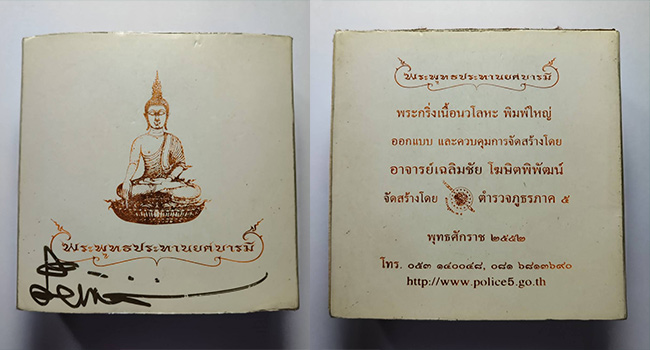 พระพุทธประทานยศบารมี
พระพุทธประทานยศบารมี
พระกริ่งเนื้อนวโลหะ พิมพ์ใหญ่
ออกแบบ และควบคุมการจัดสร้างโดย
อาจารย์เฉลิมชัย โฆษิตพิพัฒน์
จัดสร้างโดย ตำรวจภูธรภาค ๕
พุทธศักราช ๒๕๕๒
โทร. ๐๕๓ ๑๔๐๐๔๘, ๐๘๑ ๖๘๑๓๖๙๐
http://www.police5.go.th